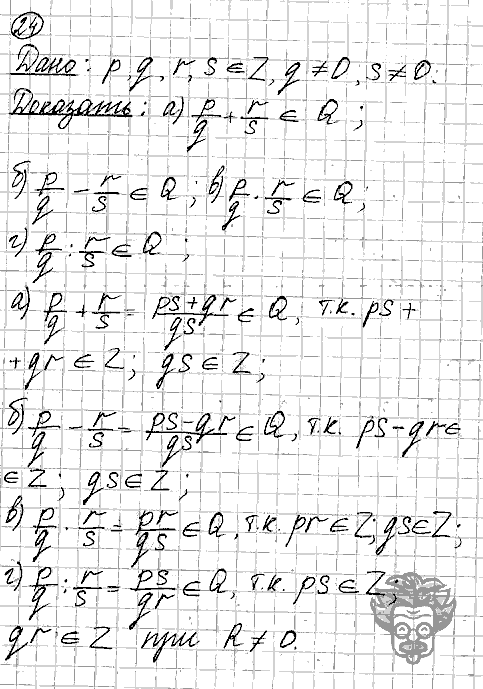 24
Дано: p, q, r, s ∈ Z, q ≠ 0, s ≠ 0.
Доказать: а) p/q + r/s ∈ Q;
б) p/q − r/s ∈ Q; в) p/q · r/s ∈ Q;
г) p/q : r/s ∈ Q;
а) p/q + r/s = (ps+qr)/(qs) ∈ Q, т.к. ps +
+ qr ∈ Z; qs ∈ Z;
б) p/q − r/s = (ps−qr)/(qs) ∈ Q, т.к. ps − qr ∈
∈ Z; qs ∈ Z;
в) p/q · r/s = pr/(qs) ∈ Q, т.к. pr ∈ Z; qs ∈ Z;
г) p/q : r/s = ps/(qr) ∈ Q, т.к. ps ∈ Z;
qr ∈ Z при R ≠ 0.